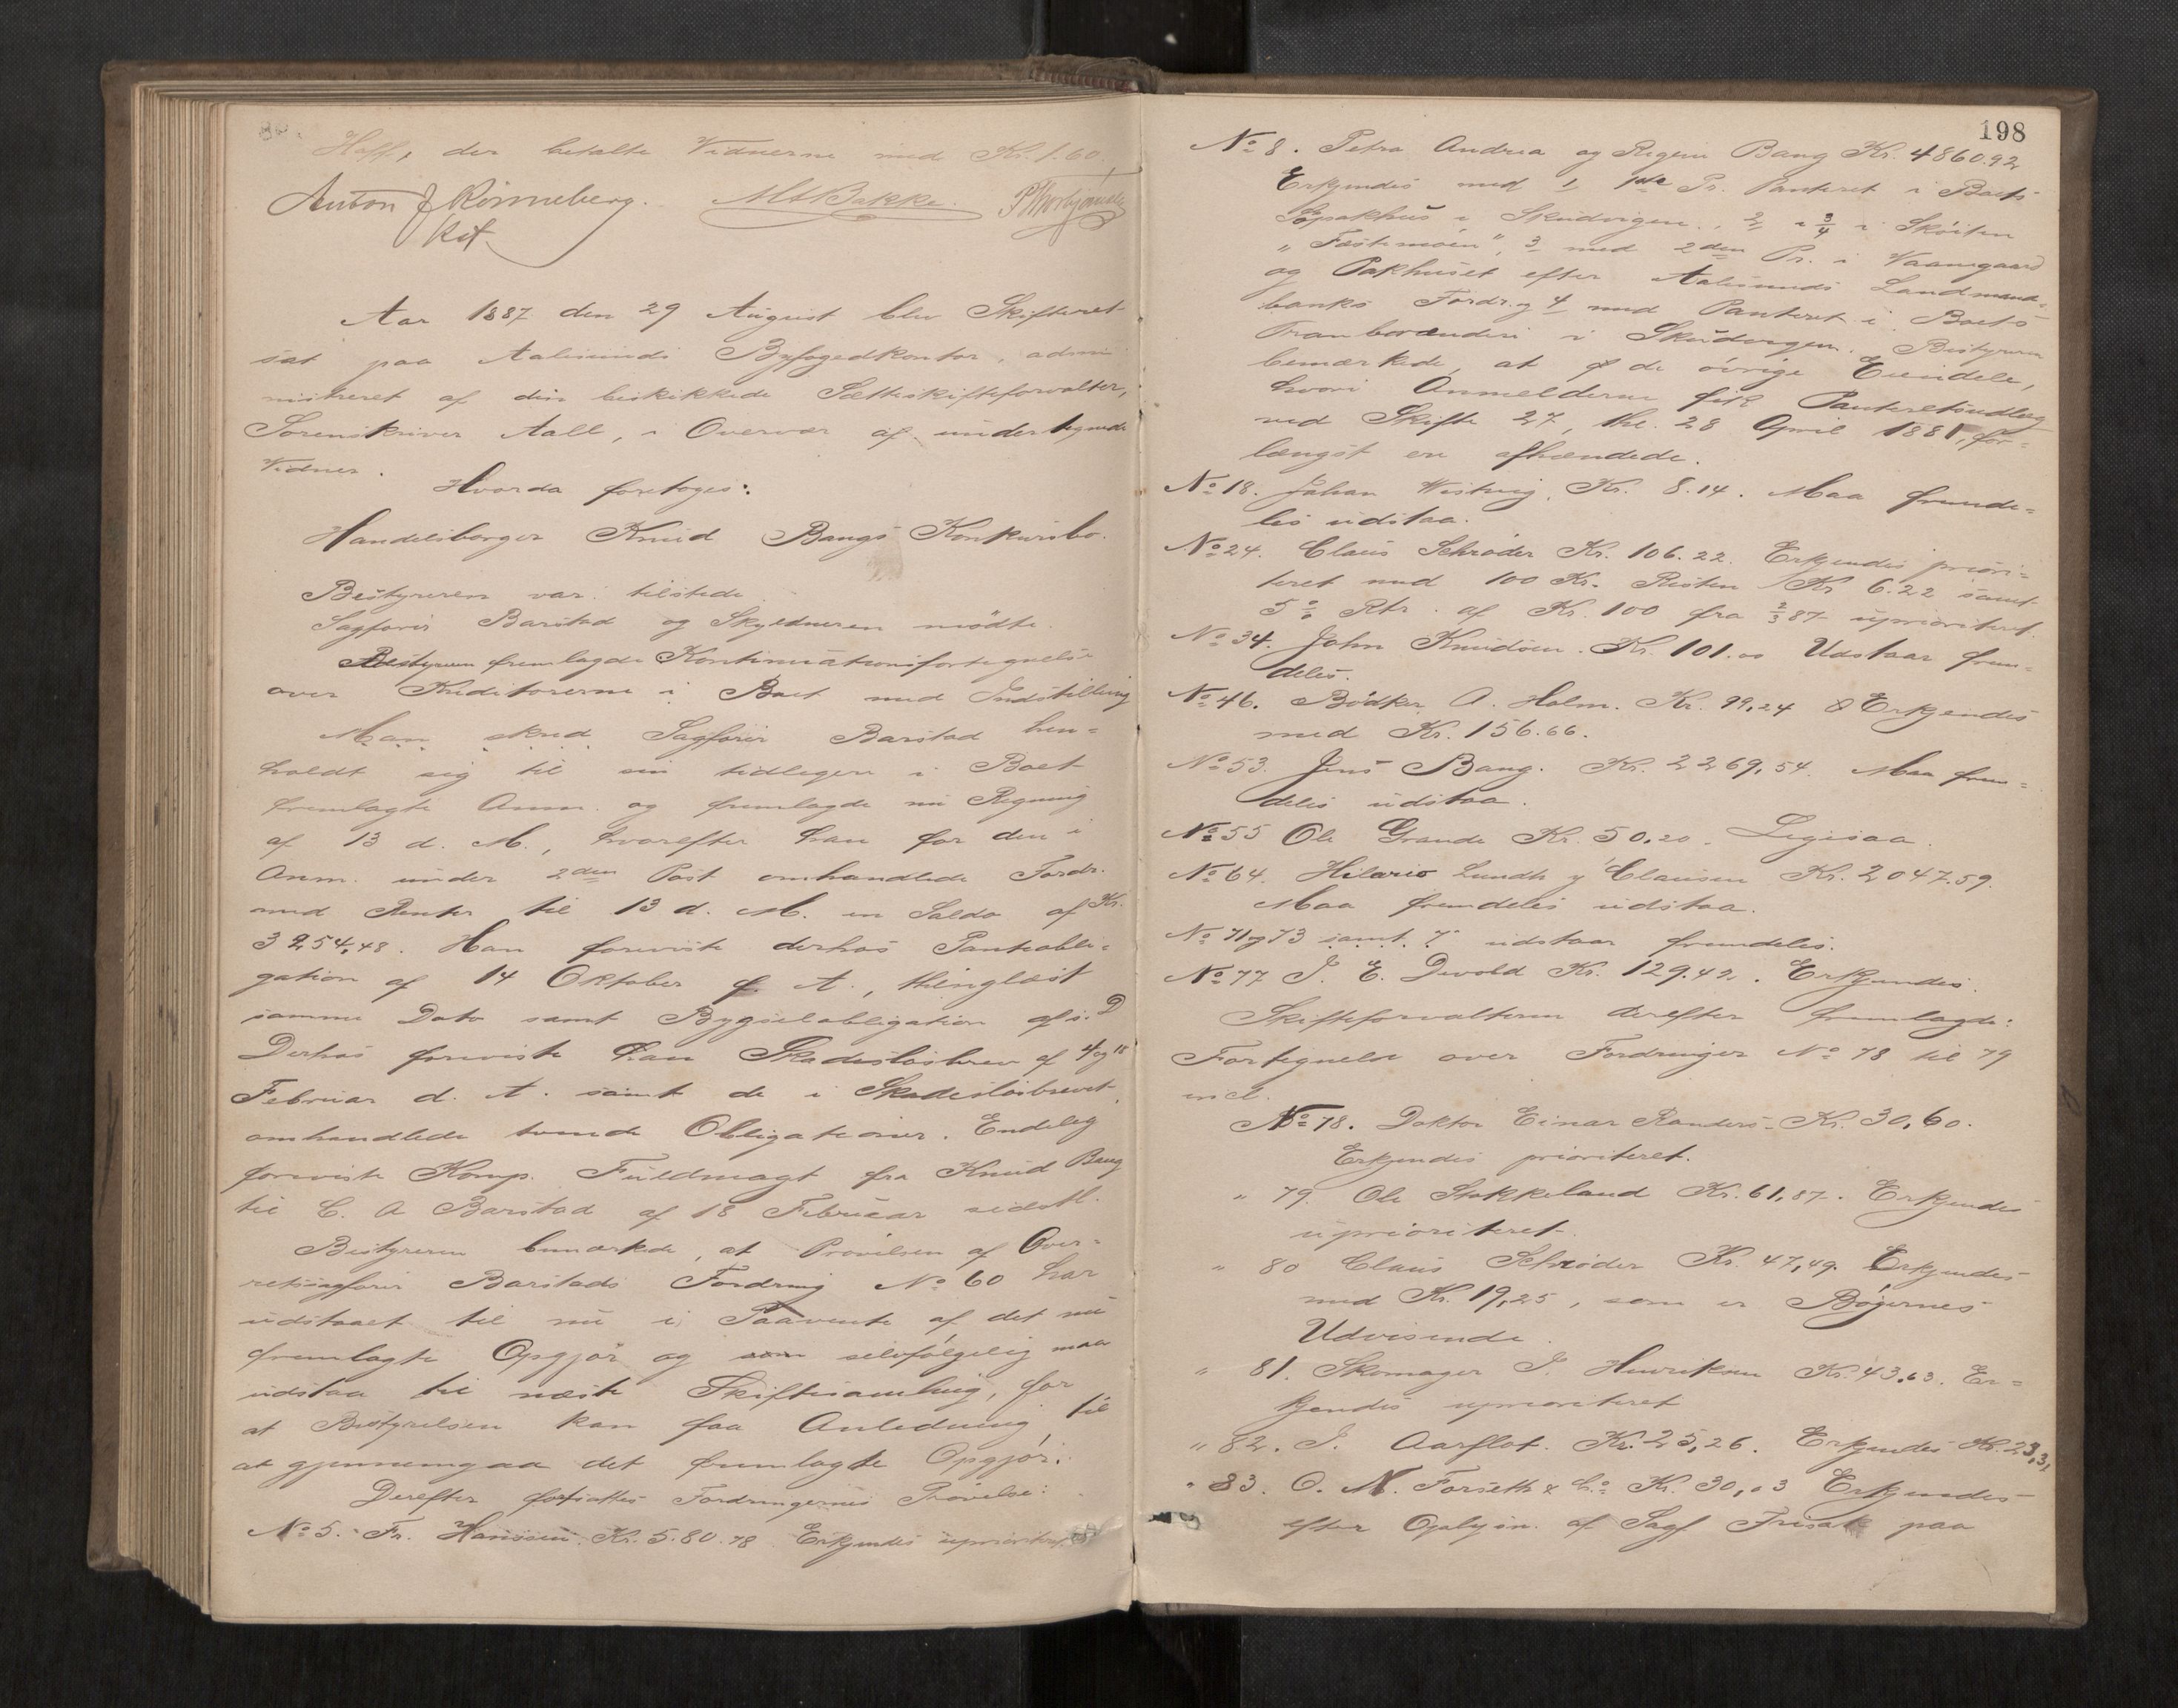 Hoff, der betalte Vidnerne med Kr. 1.60.
Anton J Rønneberg. M A Bakke. P Thorbjørnsen
Kst.
Aar 1887 den 29 August blev Skifteret
sat paa Aalesunds Byfogedkontor, admi
nistreret af den beskikkede Sætteskifteforvalter,
Sorenskriver Aall, i Overvær af undertegnede
Vidner.
Hvorda foretoges:
Handelsborger Knud Bangs Konkursbo.
Bestyreren var tilstede.
Sagfører Barstad og Skyldneren mødte.
Bestyreren fremlagde Kontinuationsfortegnelse
over Kreditorerne i Boet med Indstilling
Man skred Sagfører Barstad hen=
holdt sig til sin tidligere i Boet
fremlagte Anm. og fremlagde nu Regning
af 13 d. M., hvorefter han for den i
Anm. under 2den Post omhandlede Fordr.
med Renter til 13 d. M. en Saldo af Kr.
3254,48. Han foreviste derhos Panteobli=
gation af 14 Oktober f. A., thinglæst
samme Dato samt Bygselobligation af s. D
Derhos foreviste han Skadesløsbrev af 4 og 18
Februar d. A. samt de i Skadesløsbrevet
omhandlede tvende Obligationer. Endelig
foreviste Komp. Fuldmagt fra Knud Bang
til C. A Barstad af 18 Februar sidstl.
Bestyreren bemærkede, at Prøvelsen af Over=
retssagfører Barstads Fordring No 60 har
udstaaet til nu i Paavente af det nu
fremlagte Opgjør og som selvfølgelig maa
udstaa til næste Skiftesamling, for
at Bestyrelsen kan faa Anledning til
at gjennemgaa det fremlagte Opgjør.
Derefter fortsattes Fordringernes Prøvelse:
No 5. Fr. Hanssen. Kr. 5.80.78 Erkjendes uprioriteret
198
No 8. Petra Andrea og Regine Bang Kr. 4860.92
Erkjendes med 1 1ste Pr. Panteret i Boets
Søpakhus i Skudvigen, 2 i 3/4 i Skøiten
"Fæstemøen", 3 med 2den Pr. i Vaanegaard
og Pakhuset efter Aalesunds Landmands=
banks Fordr. og 4 med Panteret i Boets
Tranbrænderi i Skudvigen. Bestyreren
bemærkede, at de øvrige Eiendele,
hvori Anmelderne fik Panteretsudlæg
ved Skifte 27, thl. 28 April 1881, for=
længst ere afhændede.
No 18. Johan Westvig, Kr. 8.14. Maa fremde=
les udstaa.
No 24. Claus Schrøder Kr. 106.22. Erkjendes priori=
teret med 100 Kr. Resten Kr 6.22 samt
5 % Rtr. af Kr. 100 fra 2/3 87 uprioriteret.
No 34. John Knudsen. Kr. 101.00 Udstaar frem=
deles.
No 46. Bødker A. Holm. Kr. 99,24 Erkjendes
med Kr. 156.66.
No 53. Jens Bang. Kr. 2269,54. Maa frem=
deles udstaa.
No 55 Ole Grande Kr. 50,20. Ligesaa.
No 64. Hilario Lundh y Clausen Kr. 2047.59.
Maa fremdeles udstaa.
No 71 og 73 samt 7 udstaar fremdeles.
No 77 J. E. Devold Kr. 129.42. Erkjendes.
Skifteforvalteren derefter fremlagde:
Fortegnelse over Fordringer No 78 til 79
incl.
No 78. Doktor Einar Randers Kr. 30,60.
Erkjendes prioriteret.
" 79. Ole Stokkeland Kr. 61,87. Erkjendes
uprioriteret.
" 80 Claus Schrøder Kr. 47,49. Erkjendes
med Kr. 19,25, som er Bøgernes
Udvisende.
" 81. Skomager J. Henriksen Kr. 43,63. Er=
kjendes uprioriteret
" 82. J. Aarflot. Kr. 25,26. Erkjendes Kr. 23,31
" 83. O. N. Forseth & Co Kr. 30,03 Erkjendes
efter Oplysn. af Sagf Frisak paa